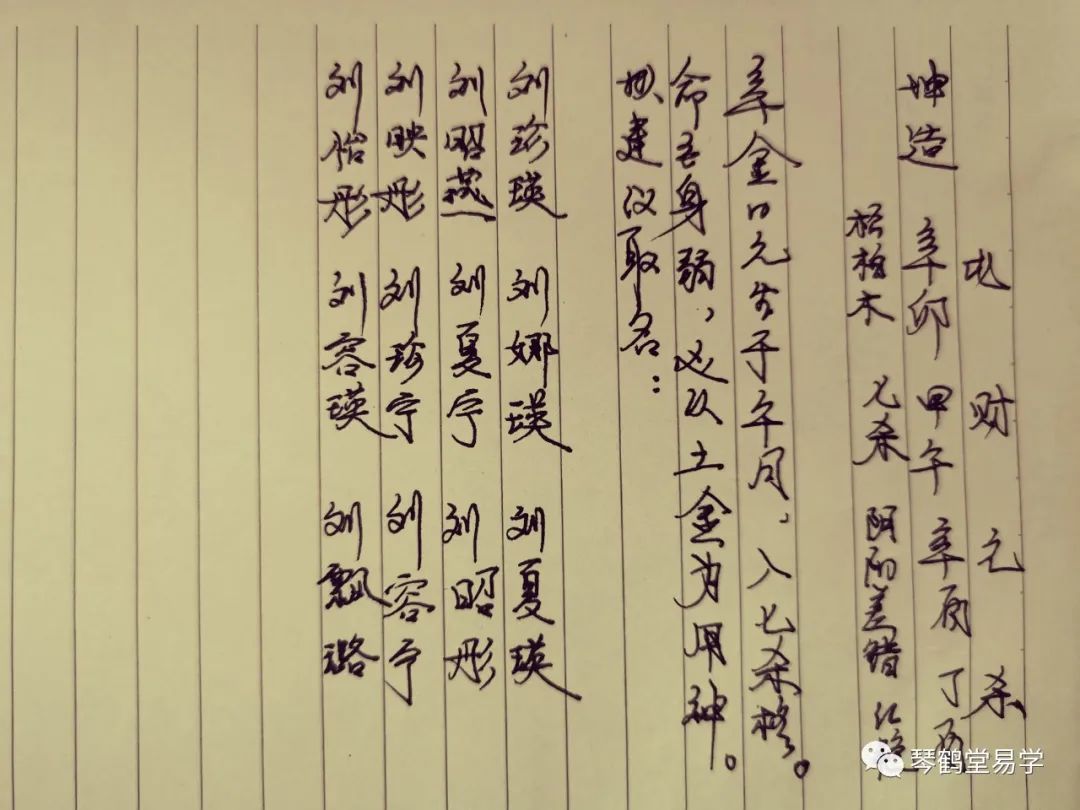 比 财 元 杀
坤造 辛卯 甲午 辛酉 丁酉
松柏木 七杀 阴阳差错 红艳
辛金日元生于午月，入七杀格。
命 身弱，必以土金为用神。
建议取名：
刘珍瑛 刘娜瑛 刘夏瑛
刘昭燕 刘夏宁 刘昭彤
刘映彤 刘珍宁 刘容宁
刘怡彤 刘容瑛 刘飘璐
琴鹤堂易学